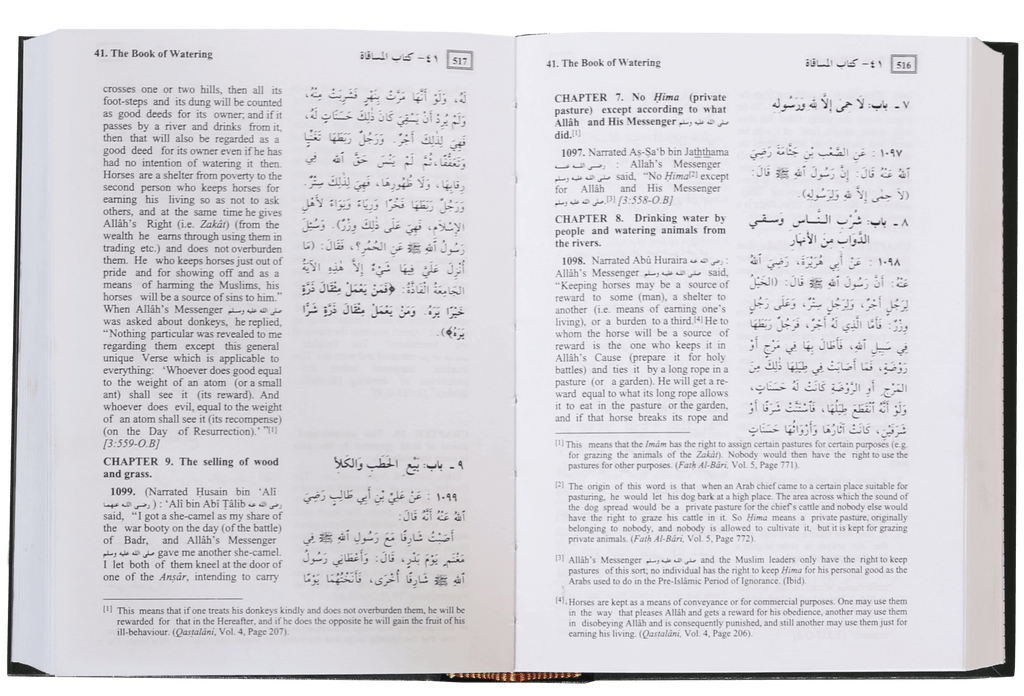 41. The Book of Watering
٤١- كتاب المساقاة
516
CHAPTER 7. No Ḥima (private
pasture) except according to what
Allâh and His Messenger صلى الله عليه وسلم
did.[1]
1097. Narrated Aṣ-Ṣa'b bin Jaththama
رضي الله عنه : Allah's Messenger
صلى الله عليه وسلم said, "No Ḥima[2] except
for Allâh and His Messenger
صلى الله عليه وسلم.[3] [3:558-O.B]
CHAPTER 8. Drinking water by
people and watering animals from
the rivers.
1098. Narrated Abû Huraira رضي الله عنه :
Allâh's Messenger صلى الله عليه وسلم said,
"Keeping horses may be a source of
reward to some (man), a shelter to
another (i.e. means of earning one's
living), or a burden to a third.[4] He to
whom the horse will be a source of
reward is the one who keeps it in
Allâh's Cause (prepare it for holy
battles) and ties it by a long rope in a
pasture (or a garden). He will get a re-
ward equal to what its long rope allows
it to eat in the pasture or the garden,
and if that horse breaks its rope and
٧ ـ باب: لَا حِمَى إِلَّا للهِ وَرَسُولِهِ
١٠٩٧ : عَنِ الصَّعْبِ بْنِ جَثَّامَةَ رَضِيَ
اللهُ عَنْهُ قَالَ: إِنَّ رَسُولَ اللهِ ﷺ قَالَ:
(لاَ حِمَى إِلَّا للهِ وَلِرَسُولِهِ).
٨ ـ باب: شُرْبِ النَّاسِ وَسَقْيِ
الدَّوَابِ مِنَ الأَنْهَارِ
١٠٩٨ : عَنْ أَبِي هُرَيْرَةَ، رَضِيَ اللهُ
عَنْهُ: أَنَّ رَسُولَ اللهِ ﷺ قَالَ: (الخَيْلُ
لِرَجُلٍ أَجْرٌ، وَلِرَجُلٍ سِتْرٌ، وَعَلَى رَجُلٍ
وِزْرٌ: فَأَمَّا الَّذِي لَهُ أَجْرٌ، فَرَجُلٌ رَبَطَهَا
فِي سَبِيلِ اللهِ، فَأَطَالَ بِهَا فِي مَرْجٍ أَوْ
رَوْضَةٍ، فَمَا أَصَابَتْ فِي طِيَلِهَا ذَلِكَ مِنَ
المَرْجِ أَوِ الرَّوْضَةِ كَانَتْ لَهُ حَسَنَاتٍ،
وَلَوْ أَنَّهُ انْقَطَعَ طِيَلُهَا، فَاسْتَنَّتْ شَرَفًا أَوْ
شَرَفَيْنِ، كَانَتْ آثَارُهَا وَأَرْوَاثُهَا حَسَنَاتٍ
[1] This means that the Imâm has the right to assign certain pastures for certain purposes (e.g.
for grazing the animals of the Zakât). Nobody would then have the right to use the
pastures for other purposes. (Fatḥ Al-Bâri, Vol. 5, Page 771).
[2] The origin of this word is that when an Arab chief came to a certain place suitable for
pasturing, he would let his dog bark at a high place. The area across which the sound of
the dog spread would be a private pasture for the chief's cattle and nobody else would
have the right to graze his cattle in it. So Ḥima means a private pasture, originally
belonging to nobody, and nobody is allowed to cultivate it, but it is kept for grazing
private animals. (Fatḥ Al-Bâri, Vol. 5, Page 772).
[3] Allâh's Messenger صلى الله عليه وسلم and the Muslim leaders only have the right to keep
pastures of this sort; no individual has the right to keep Ḥima for his personal good as the
Arabs used to do in the Pre-Islâmic Period of Ignorance. (Ibid).
[4] Horses are kept as a means of conveyance or for commercial purposes. One may use them
in the way that pleases Allâh and gets a reward for his obedience, another may use them
in disobeying Allâh and is consequently punished, and still another may use them just for
earning his living. (Qasṭalâni, Vol. 4, Page 206).
41. The Book of Watering
٤١- كتاب المساقاة
517
crosses one or two hills, then all its
foot-steps and its dung will be counted
as good deeds for its owner; and if it
passes by a river and drinks from it,
then that will also be regarded as a
good deed for its owner even if he has
had no intention of watering it then.
Horses are a shelter from poverty to the
second person who keeps horses for
earning his living so as not to ask
others, and at the same time he gives
Allâh's Right (i.e. Zakât) (from the
wealth he earns through using them in
trading etc.) and does not overburden
them. He who keeps horses just out of
pride and for showing off and as a
means of harming the Muslims, his
horses will be a source of sins to him."
When Allâh's Messenger صلى الله عليه وسلم
was asked about donkeys, he replied,
"Nothing particular was revealed to me
regarding them except this general
unique Verse which is applicable to
everything: 'Whoever does good equal
to the weight of an atom (or a small
ant) shall see it (its reward). And
whoever does evil, equal to the weight
of an atom shall see it (its recompense)
(on the Day of Resurrection).' "[1]
[3:559-O.B]
لَهُ، وَلَوْ أَنَّهَا مَرَّتْ بِنَهَرٍ فَشَرِبَتْ مِنْهُ،
وَلَمْ يُرِدْ أَنْ يَسْقِيَ كَانَ ذَلِكَ حَسَنَاتٍ لَهُ،
فَهِيَ لِذَلِكَ أَجْرٌ. وَرَجُلٌ رَبَطَهَا تَغَنِّيًا
وَتَعَفُّفًا، ثُمَّ لَمْ يَنْسَ حَقَّ اللهِ فِي
رِقَابِهَا، وَلَا ظُهُورِهَا، فَهِيَ لِذَلِكَ سِتْرٌ.
وَرَجُلٌ رَبَطَهَا فَخْرًا وَرِيَاءً وَنِوَاءً لأَهْلِ
الإِسْلَامِ، فَهِيَ عَلَى ذَلِكَ وِزْرٌ). وَسُئِلَ
رَسُولُ اللهِ ﷺ عَنِ الحُمُرِ؟، فَقَالَ: (مَا
أُنْزِلَ عَلَيَّ فِيهَا شَيْءٌ إِلاَّ هَذِهِ الآيَةُ
الجَامِعَةُ الْفَاذَّةُ: ﴿فَمَنْ يَعْمَلْ مِثْقَالَ ذَرَّةٍ
خَيْرًا يَرَهُ. وَمَنْ يَعْمَلْ مِثْقَالَ ذَرَّةٍ شَرًّا
يَرَهُ﴾).
CHAPTER 9. The selling of wood
and grass.
٩ ـ باب: بَيْعِ الحَطَبِ وَالكَلَأِ
1099. (Narrated Ḥusain bin 'Alî
رضي الله عنهما ) : 'Alî bin Abî Ṭâlib رضي الله عنه
said, "I got a she-camel as my share of
the war booty on the day (of the battle)
of Badr, and Allâh's Messenger
صلى الله عليه وسلم gave me another she-camel.
I let both of them kneel at the door of
one of the Anṣâr, intending to carry
١٠٩٩ : عَنْ عَلِيِّ بْنِ أَبِي طَالِبٍ رَضِيَ
اللهُ عَنْهُ أَنَّهُ قَالَ:
أَصَبْتُ شَارِفًا مَعَ رَسُولِ اللهِ ﷺ فِي
مَغْنَمِ يَوْمَ بَدْرٍ، قَالَ: وَأَعْطَانِي رَسُولُ
اللهِ ﷺ شَارِفًا أُخْرَى، فَأَنَخْتُهُمَا يَوْمًا
[1] This means that if one treats his donkeys kindly and does not overburden them, he will be
rewarded for that in the Hereafter, and if he does the opposite he will gain the fruit of his
ill-behaviour. (Qasṭalâni, Vol. 4, Page 207).